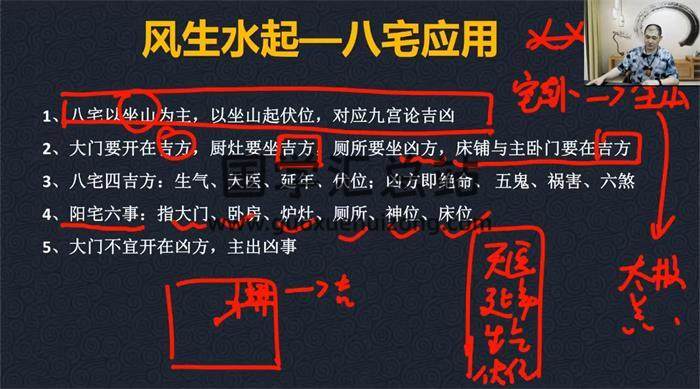 风生水起—八宅应用
1、八宅以坐山为主，以坐山起伏位，对应九宫论吉凶
2、大门要开在吉方，厨灶要坐吉方，厕所要坐凶方，床铺与主卧门要在吉方
3、八宅四吉方：生气、天医、延年、伏位；凶方即绝命、五鬼、祸害、六煞
4、阳宅六事：指大门、卧房、炉灶、厕所、神位、床位
5、大门不宜开在凶方，主出凶事
国学汇总站
www.guoxuehuizong.com
坐山
太极
点
吉
天医
延年
生气
伏位